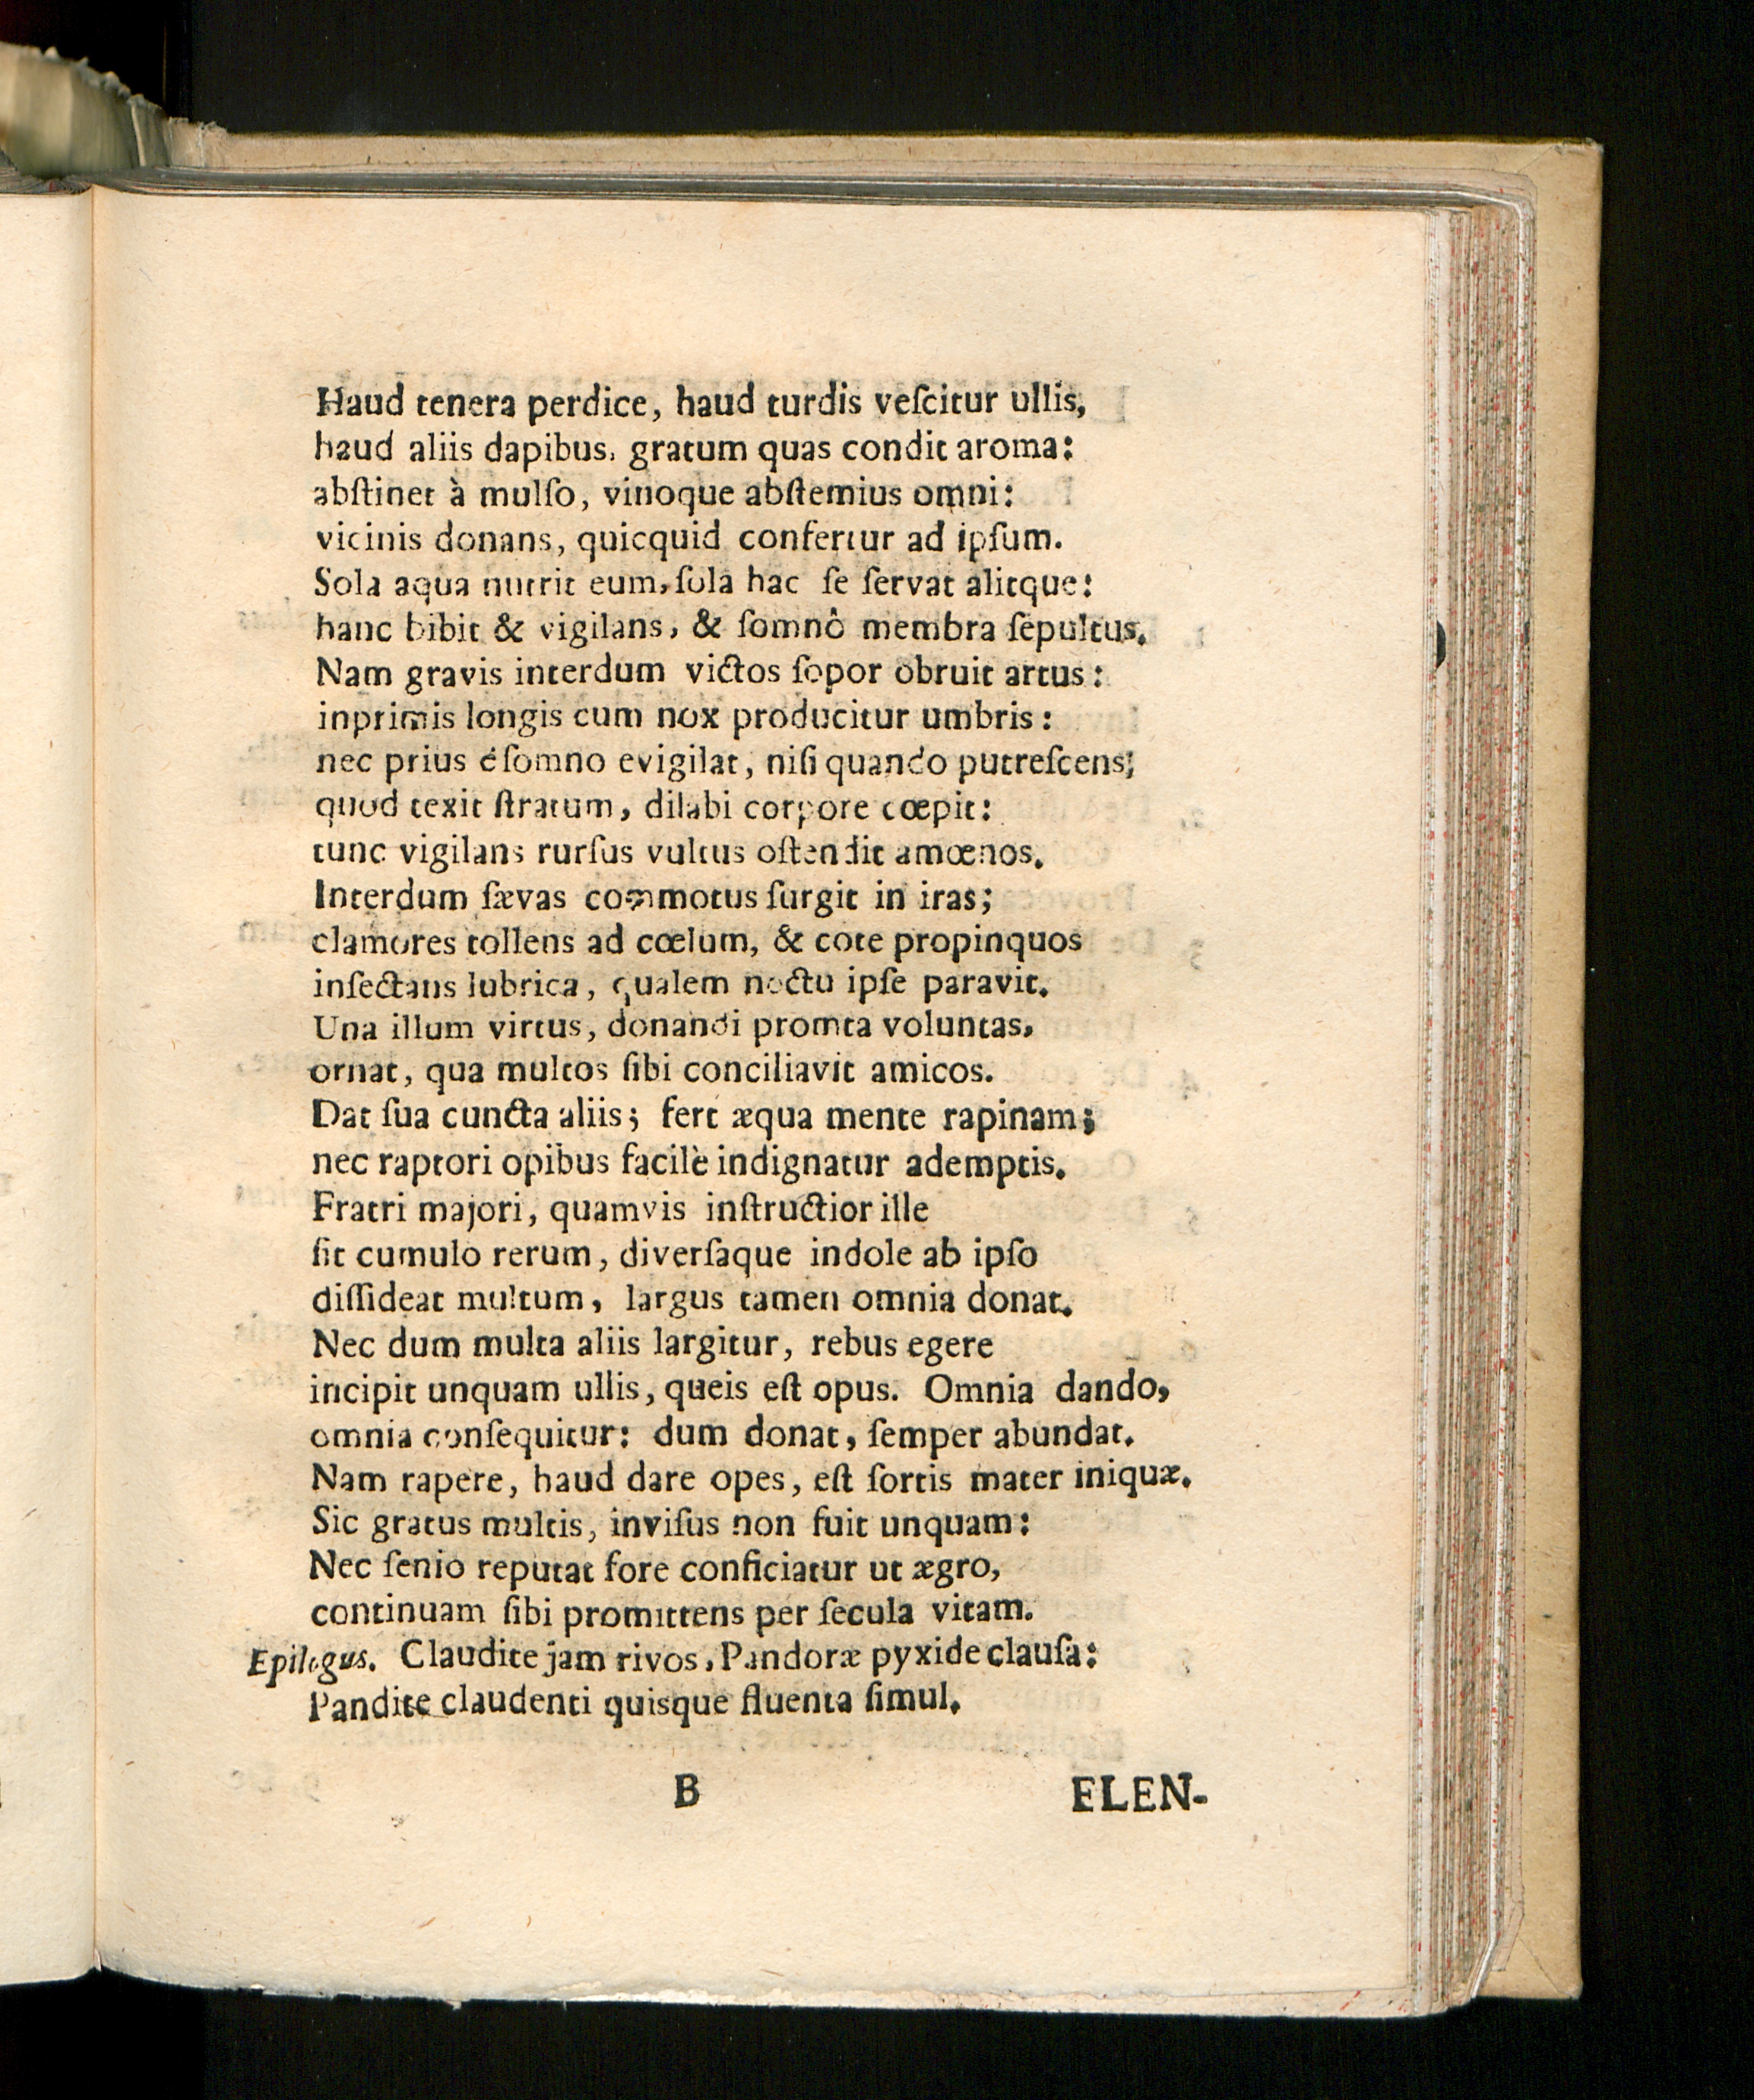 Haud tenera perdice, haud turdis veſcitur ullis,
haud aliis dapibus, gratum quas condit aroma:
abſtinet à mulſo, vinoque abſtemius omni:
vicinis donans, quicquid confertur ad ipſum.
Sola aqua nutrit eum, ſola hac ſe ſervat alitque:
hanc bibit & vigilans, & ſomnô membra ſepultus.
Nam gravis interdum victos ſopor obruit artus:
inprimis longis cum nox producitur umbris:
nec prius é ſomno evigilat, niſi quando putreſcens;
quod texit ſtratum, dilabi corpore cœpit:
tunc vigilans rurſus vultus oſtendit amœnos.
Interdum ſævas commotus ſurgit in iras;
clamores tollens ad cœlum, & cote propinquos
inſectans lubrica, qualem noctu ipſe paravit.
Una illum virtus, donandi promta voluntas,
ornat, qua multos ſibi conciliavit amicos.
Dat ſua cuncta aliis; fert æqua mente rapinam;
nec raptori opibus facilè indignatur ademptis.
Fratri majori, quamvis inſtructior ille
ſit cumulo rerum, diverſaque indole ab ipſo
diſſideat multum, largus tamen omnia donat.
Nec dum multa aliis largitur, rebus egere
incipit unquam ullis, queis eſt opus. Omnia dando,
omnia conſequitur: dum donat, ſemper abundat.
Nam rapere, haud dare opes, eſt ſortis mater iniquæ.
Sic gratus multis, inviſus non fuit unquam:
Nec ſenio reputat fore conficiatur ut ægro,
continuam ſibi promittens per ſecula vitam.
Epilogus. Claudite jam rivos, Pandoræ pyxide clauſa:
Pandite claudenti quisque fluenta ſimul.
B ELEN-